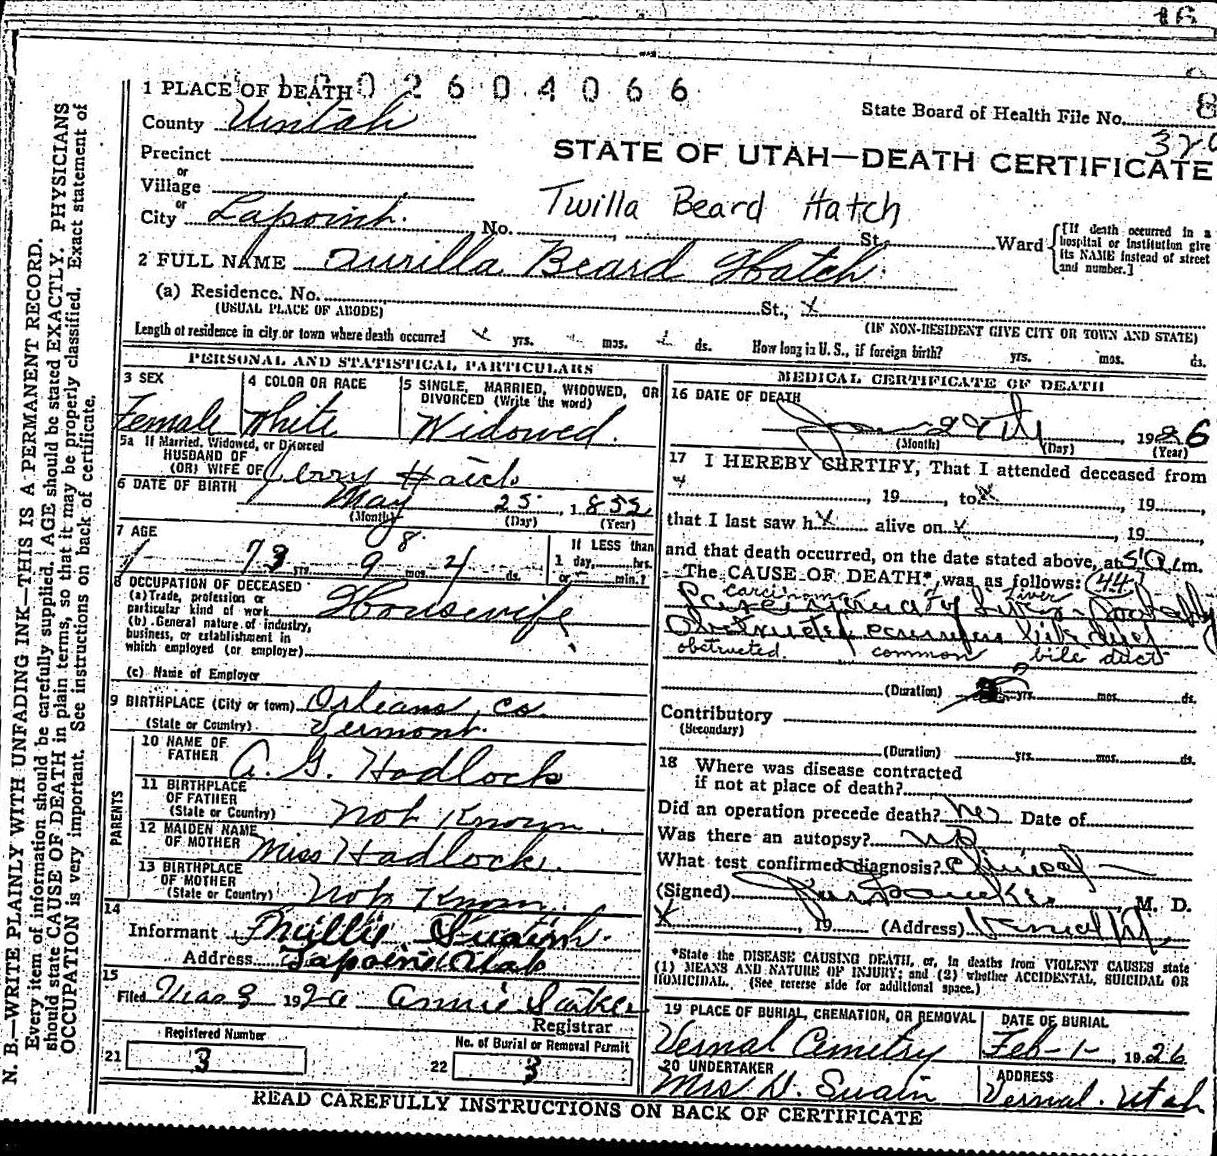 16
1 PLACE OF DEATH
1002604066
State Board of Health File No. 8
County Uintah
STATE OF UTAH—DEATH CERTIFICATE
Precinct
or
Village
or
City Lapoint.
Twilla Beard Hatch
No. St. Ward
[If death occurred in a hospital or institution give its NAME instead of street and number.]
2 FULL NAME Beard Hatch.
(a) Residence. No. St., x
(USUAL PLACE OF ABODE) (IF NON-RESIDENT GIVE CITY OR TOWN AND STATE)
Length of residence in city or town where death occurred yrs. mos. ds. How long in U. S., if foreign birth? yrs. mos. ds.
PERSONAL AND STATISTICAL PARTICULARS
3 SEX Female
4 COLOR OR RACE White
5 SINGLE, MARRIED, WIDOWED, OR DIVORCED (Write the word) Widowed.
5a If Married, Widowed, or Divorced
HUSBAND OF
(OR) WIFE OF Hatch
6 DATE OF BIRTH May 25 1852
(Month) (Day) (Year)
8
7 AGE 73 yrs. 9 mos. 4 ds.
If LESS than
1 day, hrs.
or min.?
8 OCCUPATION OF DECEASED
(a) Trade, profession or
particular kind of work Housewife
(b) General nature of industry,
business, or establishment in
which employed (or employer)
(c) Name of Employer
9 BIRTHPLACE (City or town) Orleans Co.
(State or Country) Vermont.
PARENTS
10 NAME OF
FATHER A. G. Hadlock
11 BIRTHPLACE
OF FATHER
(State or Country) Not Known.
12 MAIDEN NAME
OF MOTHER Miss Hadlock.
13 BIRTHPLACE
OF MOTHER
(State or Country) Not Known.
14
Informant Phyllis
Address Lapoint Utah
15
Filed Mar 3 192 Annie
Registrar
Registered Number
21 3
No. of Burial or Removal Permit
22 3
MEDICAL CERTIFICATE OF DEATH
16 DATE OF DEATH
Jan 29th 1926
(Month) (Day) (Year)
17 I HEREBY CERTIFY, That I attended deceased from
, 19 , to x , 19
that I last saw h alive on , 19
and that death occurred, on the date stated above, at 5 m.
The CAUSE OF DEATH*, was as follows: (44)
carcinoma liver
Carcinoma of Liver Probably
Obstructed common bile duct
obstructed. common bile duct
(Duration) yrs. mos. ds.
Contributory
(Secondary)
(Duration) yrs. mos. ds.
18 Where was disease contracted
if not at place of death?
Did an operation precede death? Date of
Was there an autopsy? no
What test confirmed diagnosis? Clinical
(Signed) M. D.
x , 19 (Address)
*State the DISEASE CAUSING DEATH, or, in deaths from VIOLENT CAUSES state
(1) MEANS AND NATURE OF INJURY; and (2) whether ACCIDENTAL, SUICIDAL OR
HOMICIDAL. (See reverse side for additional space.)
19 PLACE OF BURIAL, CREMATION, OR REMOVAL
Vernal Cemetry
DATE OF BURIAL
Feb-1-, 1926
20 UNDERTAKER
Mrs D. Swain
ADDRESS
Vernal. Utah
READ CAREFULLY INSTRUCTIONS ON BACK OF CERTIFICATE
N. B.—WRITE PLAINLY WITH UNFADING INK—THIS IS A PERMANENT RECORD.
Every item of information should be carefully supplied. AGE should be stated EXACTLY. PHYSICIANS
should state CAUSE OF DEATH in plain terms, so that it may be properly classified. Exact statement of
OCCUPATION is very important. See instructions on back of certificate.